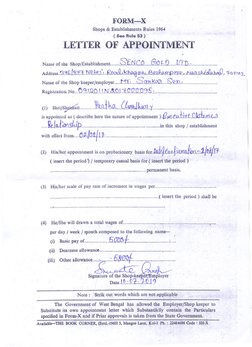 FORM—X
Shops & Establishments Rules 1964
( See Rule 53 )
LETTER OF APPOINTMENT
Name of the Shop/Establishment SENCO GOLD LTD
Address
Name of the Shop keeper/employer Mr. Sankar Sen.
Registration No.
(1) Shri/ Partha Chowdhury
is appointed as ( describe here the nature of appointment ) Executive Customer
Relationship in this shop / establishment
with effect from 02/08/17
(2) His/her appointment is on probationary basis for
( insert the period ) / temporary casual basis for ( insert the period )
permanent basis.
(3) His/her scale of pay rate of increment in wages per
( insert the period ) shall be
(4) He/She will drawn a total wages of
per day / week / speech composed to the following name—
(i) Basic pay of 5000/-
(ii) Dearness allowance
(iii) Other allowance
Signature of the Shop-keeper/Employer
Date
Note : Strik out words which are not applicable
The Government of West Bengal has allowed the Employer/Shop keeper to
Substitute its own appointment letter which Substantially contain the Particulars
specified in Form-X and if Prior approval is taken from the State Government.
Available—THE BOOK CORNER,